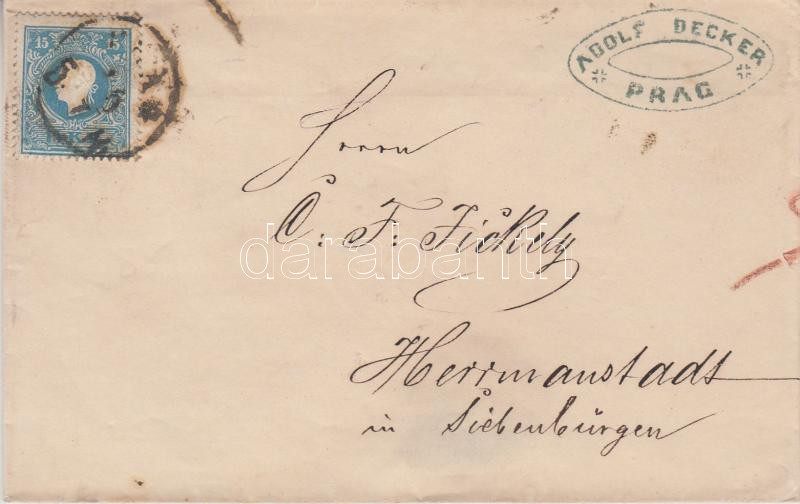 15 15
ADOLF DECKER
PRAG
Herrn
C: F: Jickely
darabanth
Herrmanstadt
in Siebenbürgen